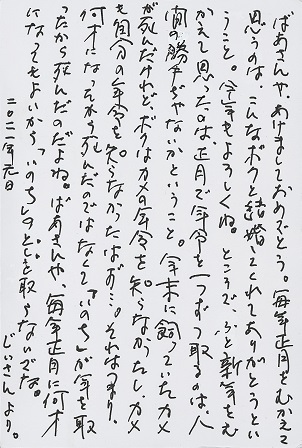 ばあさんや、あけましておめでとう。毎年正月をむかえて
思うのは、こんなボクと結婚してくれてありがとうとい
うこと。今年もよろしくね。ところで、ふと新年をむ
かえて思ったのは、正月で年令を一つずつ取るのは、人
間の勝手ぢゃないかということ。年末に飼っていたカメ
が死んだけれど、ボクはカメの年令を知らなかったし、カメ
も自分の年令を知らなかったはず…。それはつまり、
何才になったから死んだのではなくて『いのち』が年を取
ったから死んだのだよね。ばあさんや、毎年正月に何才
になってもよいから『いのち』のとしを取らないでな。
二〇二一年元日 じいさんより。